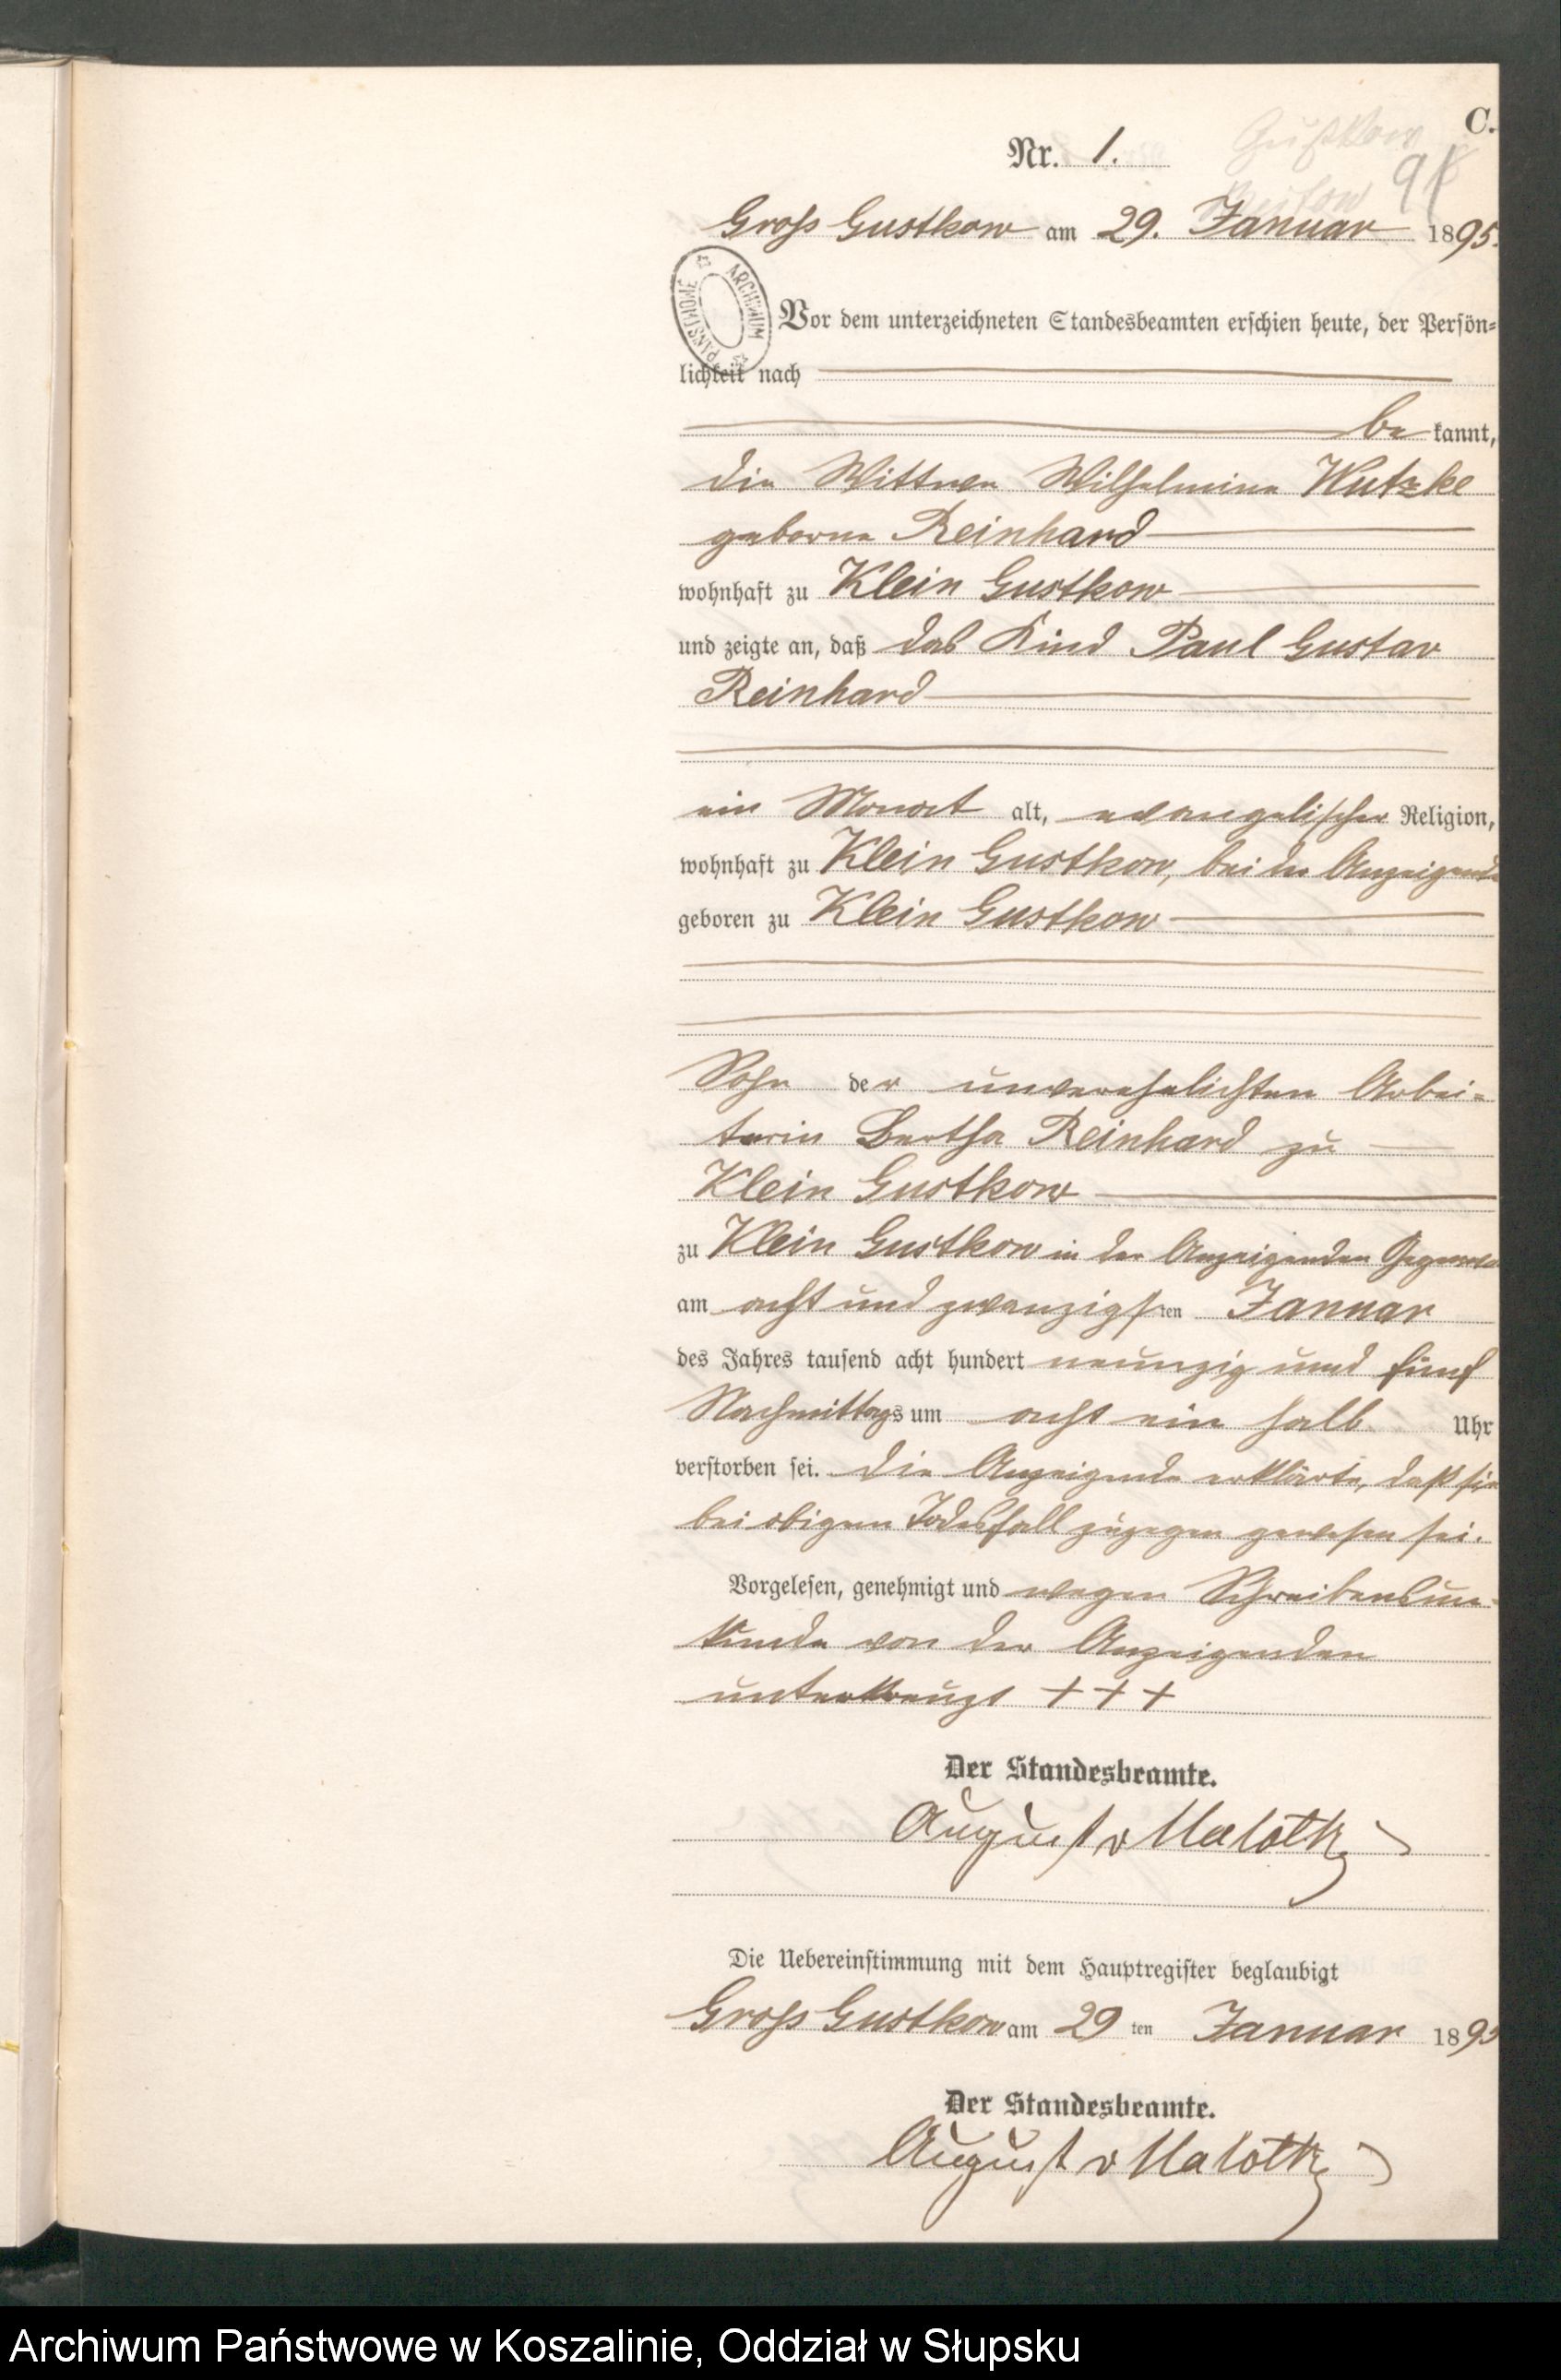 C.
Nr. 1.
Gross Gustkow am 29. Januar 1895.
ARCHIWUM PAŃSTWOWE
Vor dem unterzeichneten Standesbeamten erschien heute, der Persön=
lichkeit nach
bekannt,
die Wittwe Wilhelmine Wutzke
geborne Reinhard
wohnhaft zu Klein Gustkow
und zeigte an, daß das Kind Paul Gustav
Reinhard
ein Monat alt, evangelischer Religion,
wohnhaft zu Klein Gustkow, bei der Anzeigende
geboren zu Klein Gustkow
Sohn der unverehelichten Arbei=
terin Bertha Reinhard zu
Klein Gustkow
zu Klein Gustkow in der Anzeigenden
am acht und zwanzigsten Januar
des Jahres tausend acht hundert neunzig und fünf
Nachmittags um acht ein halb Uhr
verstorben sei. Die Anzeigende erklärte, daß sie
bei obigem Todesfall zugegen gewesen sei.
Vorgelesen, genehmigt und wegen Schreibensun-
kunde von der Anzeigenden
unterkreuzt + + +
Der Standesbeamte.
August v Malotky
Die Uebereinstimmung mit dem Hauptregister beglaubigt
Gross Gustkow am 29 ten Januar 1895
Der Standesbeamte.
August v Malotky
Archiwum Państwowe w Koszalinie, Oddział w Słupsku